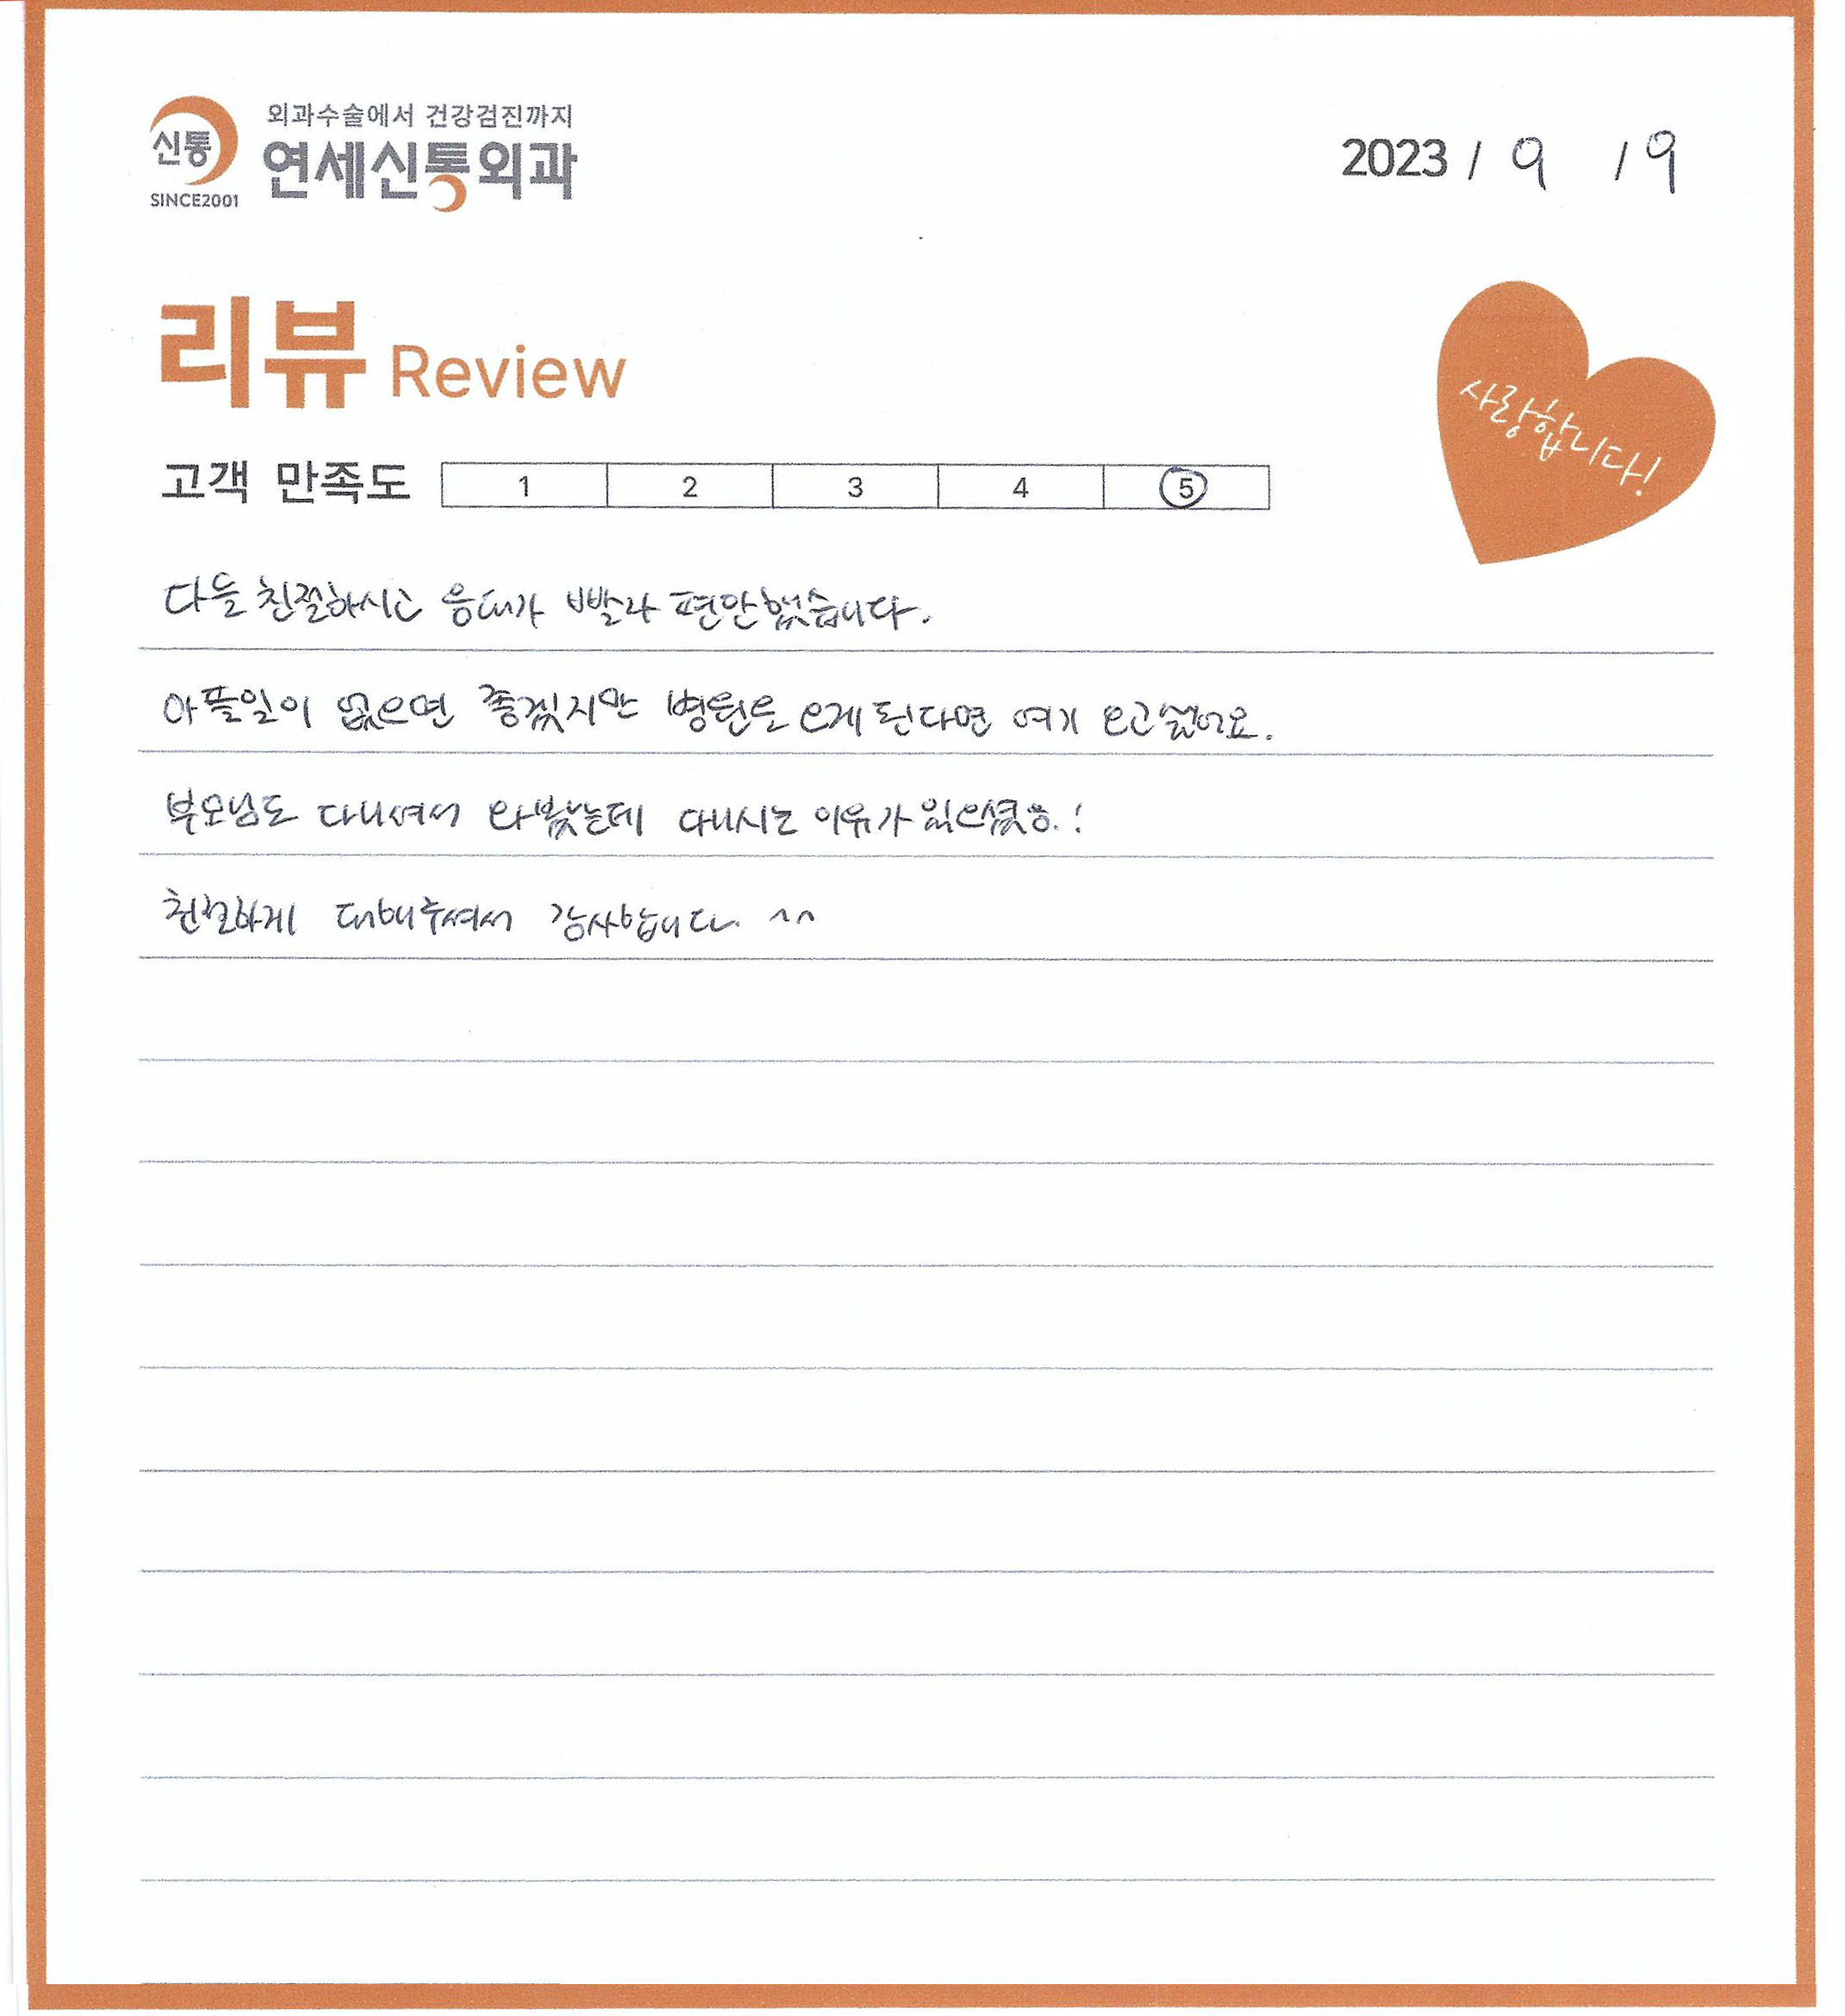 신통
SINCE2001
외과수술에서 건강검진까지
연세신통외과
2023 / 9 / 9
리뷰 Review
사랑합니다!
고객 만족도 1 2 3 4 5
다들 친절하시고 응대가 빨라 편안했습니다.
아플일이 없으면 좋겠지만 병원을 오게 된다면 여기 오고싶어요.
부모님도 다니셔서 와봤는데 다니시는 이유가 있으셨음.!
친절하게 대해주셔서 감사합니다. ^^